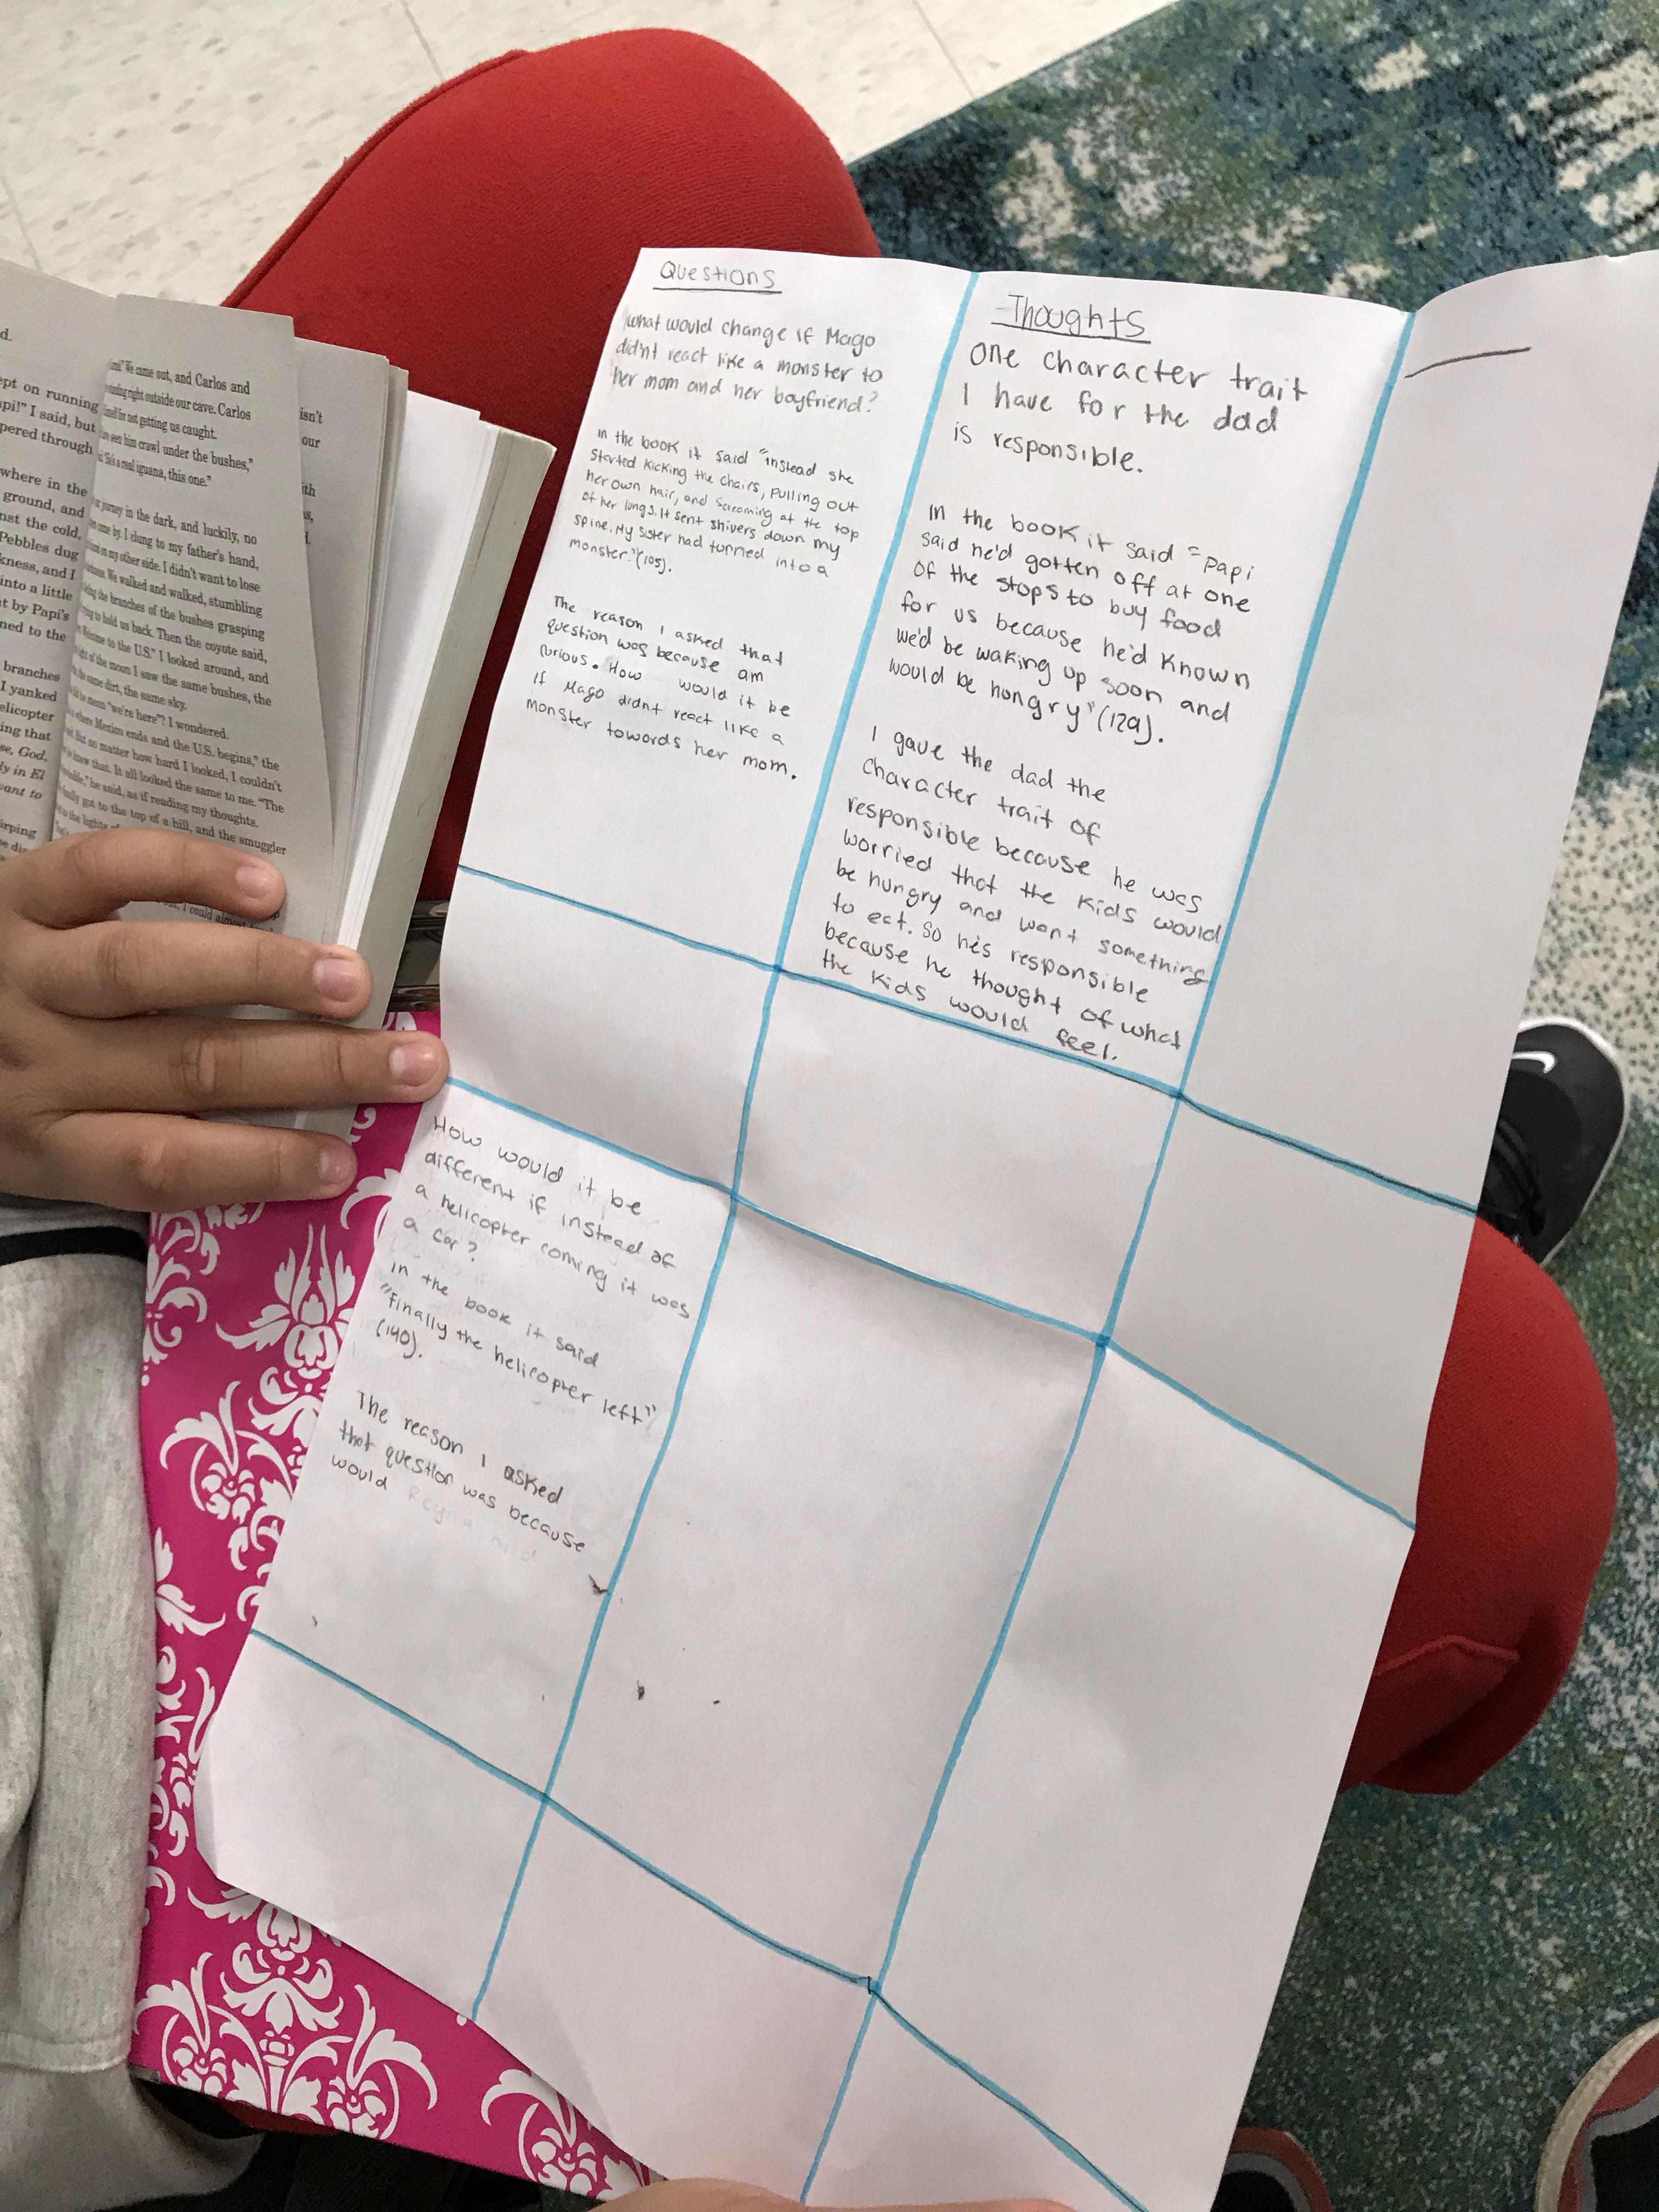 d.
ept on running
api!" I said, but
pered through
where in the
ground, and
nst the cold,
Pebbles dug
kness, and I
into a little
t by Papi's
ned to the
branches
I yanked
elicopter
ing that
se, God,
ly in El
vant to
irping
We came out, and Carlos and
right outside our cave. Carlos
for not getting us caught.
seen him crawl under the bushes,"
a real iguana, this one."
journey in the dark, and luckily, no
came by. I clung to my father's hand,
on my other side. I didn't want to lose
We walked and walked, stumbling
the branches of the bushes grasping
to hold us back. Then the coyote said,
to the U.S." I looked around, and
of the moon I saw the same bushes, the
the same dirt, the same sky.
mean "we're here"? I wondered.
where Mexico ends and the U.S. begins," the
But no matter how hard I looked, I couldn't
knew that. It all looked the same to me. "The
he said, as if reading my thoughts.
finally got to the top of a hill, and the smuggler
to the lights of
I could almost
isn't
our
ith
s,
d.
Questions
What would change if Mago
didn't react like a monster to
her mom and her boyfriend?
In the book it said "instead she
started kicking the chairs, pulling out
her own hair, and screaming at the top
of her lungs. It sent shivers down my
spine. My sister had turned into a
monster."(105).
The reason I asked that
question was because am
curious. How would it be
if Mago didnt react like a
monster towards her mom.
Thoughts
One character trait
I have for the dad
is responsible.
In the book it said "Papi
said he'd gotten off at one
of the stops to buy food
for us because he'd known
we'd be waking up soon and
would be hungry"(129).
I gave the dad the
character trait of
responsible because he was
worried that the kids would
be hungry and want something
to eat. So he's responsible
because he thought of what
the kids would feel.
How would it be
different if instead of
a helicopter coming it was
a car?
In the book it said
"Finally the helicopter left"
(140).
The reason I asked
that question was because
would Reyna and